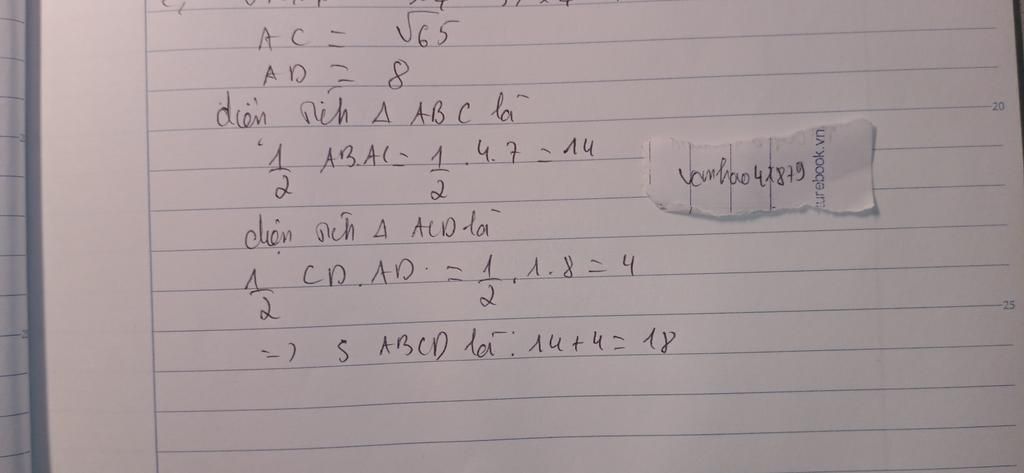 AC = √65
AD = 8
diện tích Δ ABC là
1/2 AB.AC = 1/2 . 4.7 = 14
diện tích Δ ACD là
1/2 CD.AD. = 1/2 . 1.8 = 4
=> S ABCD là : 14+4 = 18
20
25
vanhao41879
urebook.vn